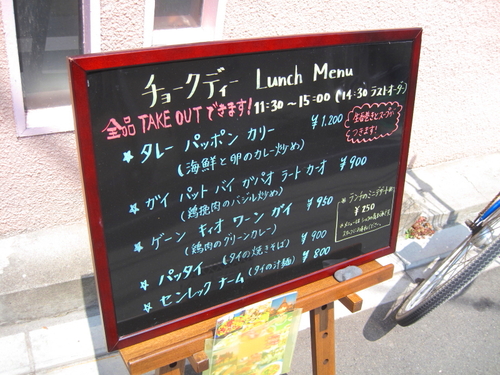 チョークディー Lunch Menu
全品 TAKE OUT できます! 11:30~15:00 (*14:30 ラストオーダー)
★ タレー パッポン カリー ¥1,200
(海鮮と卵のカレー炒め)
生春巻きとスープが
つきます!
★ ガイ パット バイ ガパオ ラート カーオ ¥900
(鶏挽肉のバジル炒め)
★ ゲーン キィオ ワーン ガイ ¥950
(鶏肉のグリーンカレー)
★ パッタイ (タイの焼きそば) ¥900
★ センレック ナーム (タイの汁麺) ¥800
*ランチのミニデザート*
¥250